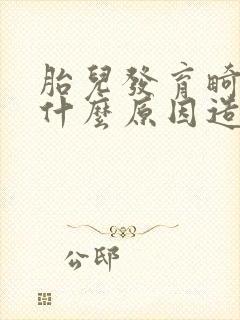 胎兒發育畸
什麼原因造
公邸